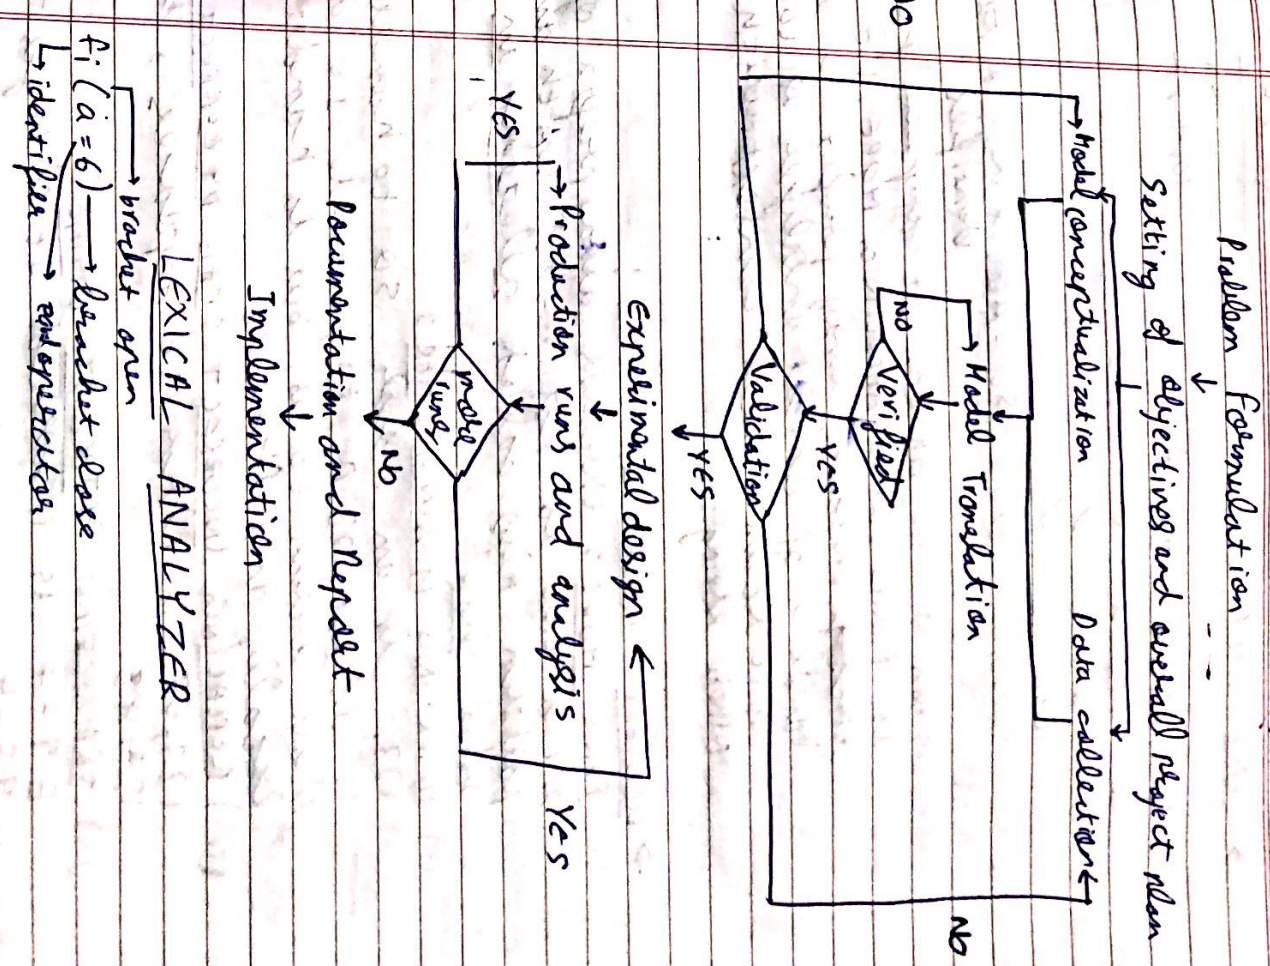 Problem formulation
Setting of objectives and overall project plan
Model conceptualization
Data collection
Model Translation
NO
Verified
YES
Validation
No
YES
Experimental design
Production runs and analysis
YES
Yes
more runs
No
Documentation and Report
Implementation
LEXICAL ANALYZER
bracket open
fi (a = 6) → bracket close
identifier → operator